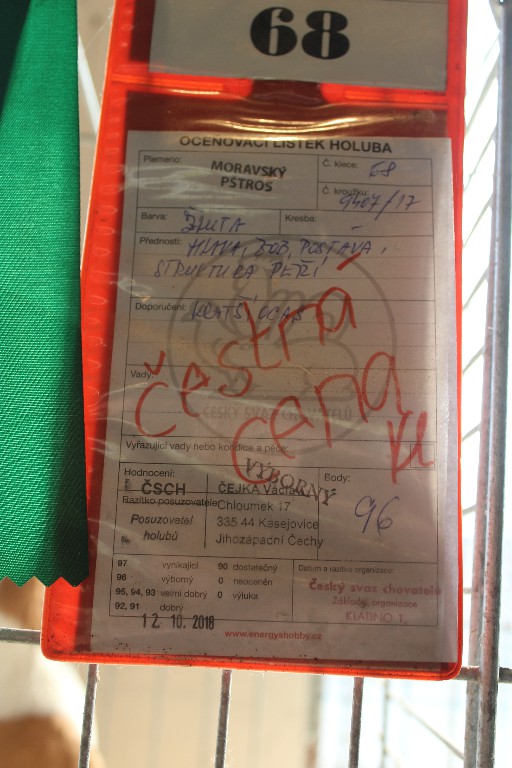 68
OCEŇOVACÍ LÍSTEK HOLUBA
Plemeno: MORAVSKÝ PŠTROS
Č. klece: 68
Č. kroužku: 9407/17
Barva: ŽLUTÁ Kresba: -
Přednosti: HLAVA, ZOB, POSTAVA,
STRUKTURA PEŘÍ
Doporučení: KRATŠÍ OCAS
Vady:
Čestná
cena
Kl
ČESKÝ SVAZ CHOVATELŮ
Vyřazující vady nebo kondice a péče:
Hodnocení: VÝBORNÝ
Body: 96
ČSCH ČEJKA Václav
Razítko posuzovatele Chloumek 17
Posuzovatel 335 44 Kasejovice
holubů Jihozápadní Čechy
97 vynikající 90 dostatečný
96 výborný 0 neoceněn
95, 94, 93 velmi dobrý 0 výluka
92, 91 dobrý
Datum a razítko organizace:
Český svaz chovatelů
Základní organizace
KLATNO 1.
12. 10. 2018
www.energyshobby.cz